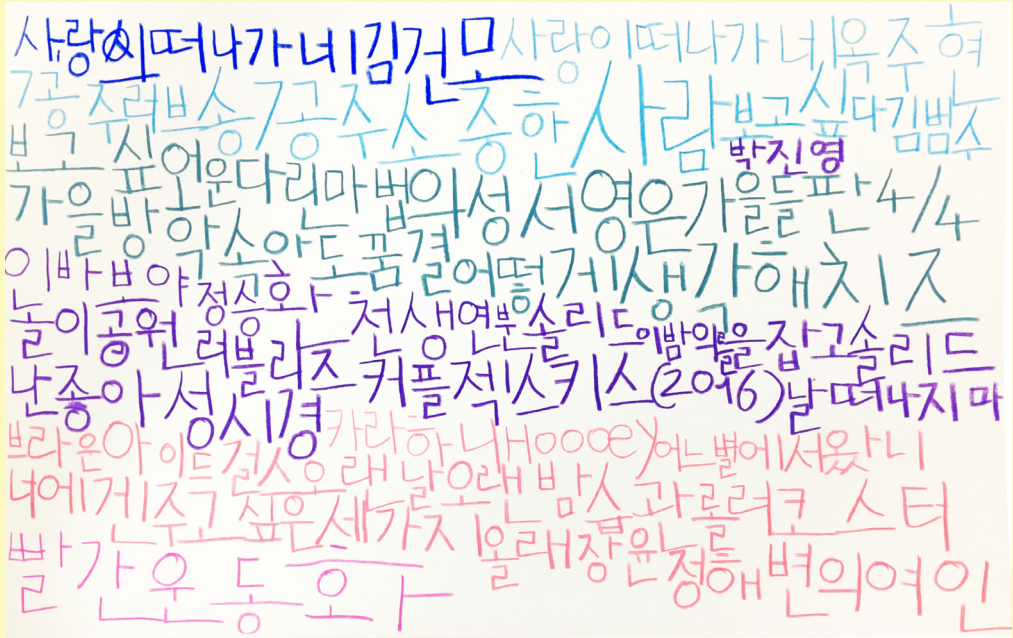 사랑이떠나가네김건모사랑이떠나가네옥주현
7공주러브송7공주소중한사람보고싶다김범수
보고싶어운다린마법의성서영은박진영
가을방학속아도꿈결어떻게생각해치즈가을들판4/4
이바보야정승환천생연분솔리드이밤의끝을잡고솔리드
놀이공원러블리즈커플젝스키스(2016)날떠나지마
난좋아성시경카라하니Hooooey어느별에서왔니
브라운아이드걸스오래날오랜밤숲과롤러코스터
너에게주고싶은세가지올래장윤정해변의여인
빨간운동화